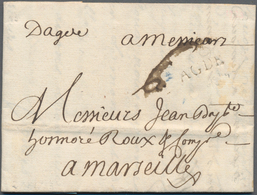 Dagde a menpian
AGDE
Messieurs Jean Bapte
honnoré Roux & Compe
a marseille